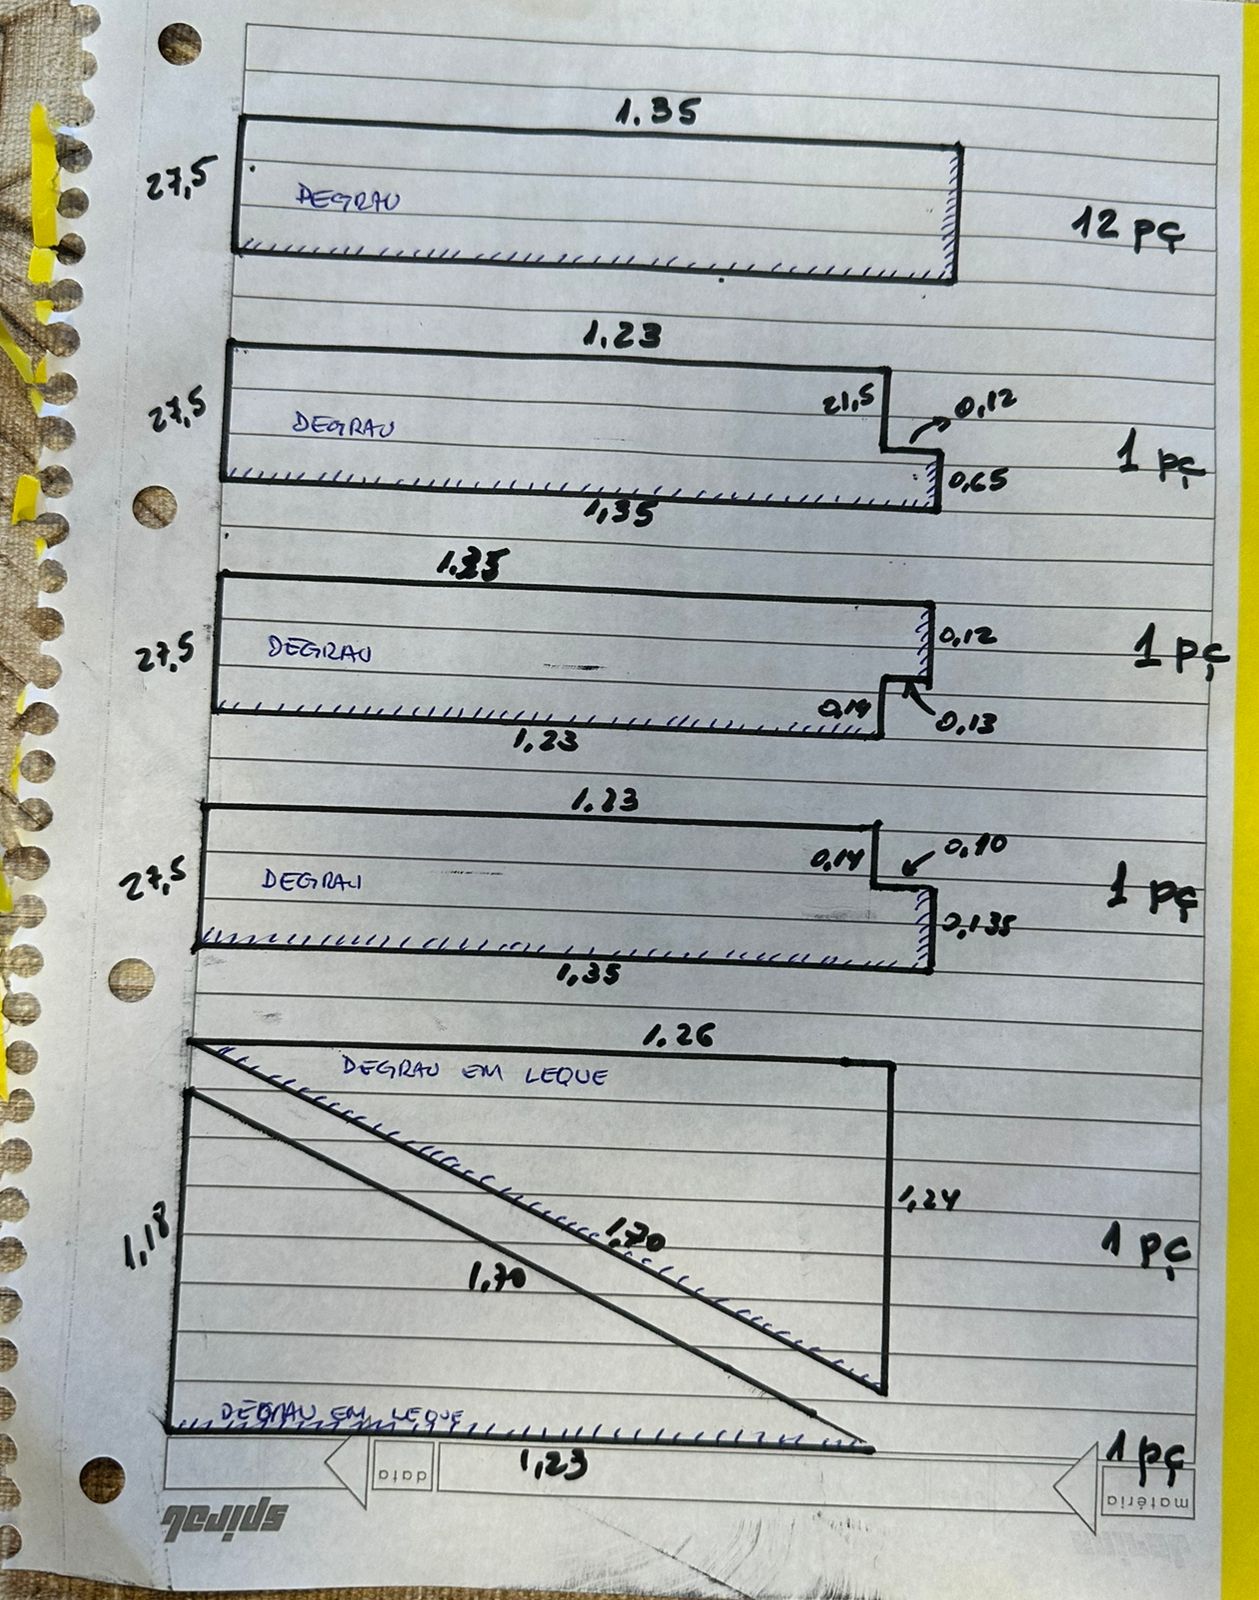 1.35
27,5
DEGRAU
12 pç
1.23
27,5
DEGRAU
21,5
0,12
1 pç
0,65
1,35
1.35
27,5
DEGRAU
0,12
1 pç
0,14
0,13
1,23
1.23
27,5
DEGRAU
0,14
0,10
1 pç
0,135
1,35
1.26
DEGRAU EM LEQUE
1,24
1,18
1,70
1,70
1 pç
DEGRAU EM LEQUE
1,23
1 pç
data
matéria
spiral